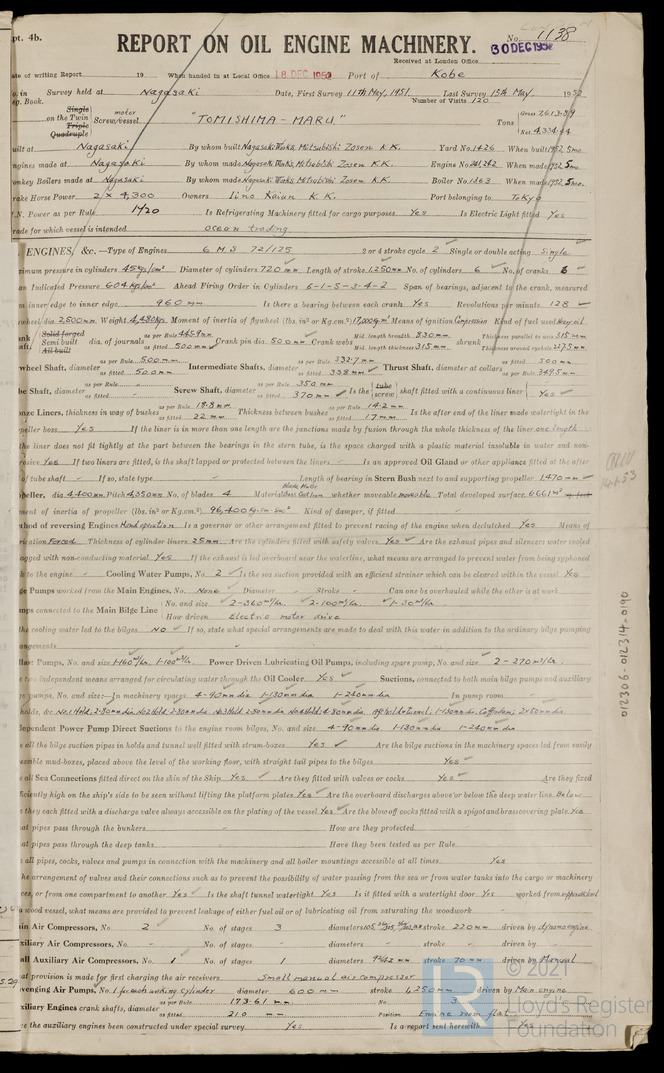 pt. 4b.
REPORT ON OIL ENGINE MACHINERY.
No. 1138
30 DEC 195
Received at London Office
ate of writing Report 19 When handed in at Local Office 18 DEC 195 Port of Kobe
Survey held at Nagasaki Date, First Survey 11th May, 1951 Last Survey 15th May 195
g. Book. Number of Visits 120
Single
on the Twin
Triple
Quadruple
motor
Screw vessel "TOMISHIMA-MARU" Tons Gross Net 4,334.44
uilt at Nagasaki By whom built Nagasaki Works, Mitsubishi Zosen K.K. Yard No. 1426 When built 1952, 5mo
ngines made at Nagasaki By whom made Nagasaki Works, Mitsubishi Zosen K.K. Engine No. When made 1952, 5mo
nkey Boilers made at Nagasaki By whom made Nagasaki Works, Mitsubishi Zosen K.K. Boiler No. 1263 When made 1952, 5mo.
rake Horse Power 2 × 4,300 Owners Iino Kaiun K.K. Port belonging to Tokyo
.N. Power as per Rule 1720 Is Refrigerating Machinery fitted for cargo purposes Yes Is Electric Light fitted Yes
rade for which vessel is intended ocean trading
ENGINES, &c.—Type of Engines 6 M S 72/125 2 or 4 stroke cycle 2 Single or double acting Single
ximum pressure in cylinders 45 kg/cm² Diameter of cylinders 720 mm Length of stroke 1,250 mm No. of cylinders 6 No. of cranks 6
an Indicated Pressure 6.04 kg/cm² Ahead Firing Order in Cylinders 6-1-5-3-4-2 Span of bearings, adjacent to the crank, measured
m inner edge to inner edge 960 mm Is there a bearing between each crank Yes Revolutions per minute 128
wheel dia 2,500 mm Weight 4,480 kgs Moment of inertia of flywheel (lbs. in² or Kg.cm.²) Means of ignition Compression Kind of fuel used Heavy oil
Solid forged
Semi built
All built
dia. of journals as per Rule 445.9 mm as fitted 500 mm Crank pin dia. 500 mm Crank webs Mid. length breadth 830 mm Mid. length thickness 315 mm shrunk Thickness parallel to axis 315 mm Thickness around eyehole 227.5 mm
wheel Shaft, diameter as per Rule 500 mm as fitted 500 mm Intermediate Shafts, diameter as per Rule 332.7 mm as fitted 338 mm Thrust Shaft, diameter at collars as fitted 500 mm as per Rule 349.5 mm
be Shaft, diameter as per Rule as fitted Screw Shaft, diameter as per Rule 350 mm as fitted 370 mm Is the tube screw shaft fitted with a continuous liner Yes
nze Liners, thickness in way of bushes as per Rule 18.8 mm as fitted 22 mm Thickness between bushes as per Rule 14.2 mm as fitted 17 mm Is the after end of the liner made watertight in the
peller boss Yes If the liner is in more than one length are the junctions made by fusion through the whole thickness of the liner one length
the liner does not fit tightly at the part between the bearings in the stern tube, is the space charged with a plastic material insoluble in water and non-
rosive Yes If two liners are fitted, is the shaft lapped or protected between the liners - Is an approved Oil Gland or other appliance fitted at the after
of tube shaft - If so, state type - Length of bearing in Stern Bush next to and supporting propeller 1470 mm
peller, dia 4,400 mm Pitch 4,350 mm No. of blades 4 Material whether moveable moveable Total developed surface 6.661 m²
ment of inertia of propeller (lbs. in² or Kg.cm.²) 96,400 Kind of damper, if fitted
thod of reversing Engines Hand operation Is a governor or other arrangement fitted to prevent racing of the engine when declutched Yes Means of
rication Forced Thickness of cylinder liners 25 mm Are the cylinders fitted with safety valves Yes Are the exhaust pipes and silencers water cooled
agged with non-conducting material Yes If the exhaust is led overboard near the waterline, what means are arranged to prevent water from being syphoned
k to the engine - Cooling Water Pumps, No. 2 Is the sea suction provided with an efficient strainer which can be cleared within the vessel Yes
ge Pumps worked from the Main Engines, No. None Diameter - Stroke - Can one be overhauled while the other is at work
mps connected to the Main Bilge Line No. and size 2-360 m³/hr. 2-100 m³/hr. 1-30 m³/hr
How driven Electric motor drive
the cooling water led to the bilges No If so, state what special arrangements are made to deal with this water in addition to the ordinary bilge pumping
angements
llast Pumps, No. and size 1-160 m³/hr. 1-100 m³/hr. Power Driven Lubricating Oil Pumps, including spare pump, No. and size 2-270 m³/hr.
e two independent means arranged for circulating water through the Oil Cooler Yes Suctions, connected to both main bilge pumps and auxiliary
ge pumps, No. and size:—In machinery spaces 4-90 mm dia 1-130 mm dia 1-240 mm dia In pump room -
holds, &c. No.1 Hold; 2-80 mm dia No2 Hold; 2-80 mm dia No3 Hold 2-80 mm dia
dependent Power Pump Direct Suctions to the engine room bilges, No. and size 4-90 mm dia 1-130 mm dia 1-240 mm dia
e all the bilge suction pipes in holds and tunnel well fitted with strum-boxes Yes Are the bilge suctions in the machinery spaces led from easily
essible mud-boxes, placed above the level of the working floor, with straight tail pipes to the bilges Yes
e all Sea Connections fitted direct on the skin of the Ship Yes Are they fitted with valves or cocks Yes Are they fixed
ficiently high on the ship's side to be seen without lifting the platform plates Yes Are the overboard discharges above or below the deep water line Below
e they each fitted with a discharge valve always accessible on the plating of the vessel Yes Are the blow off cocks fitted with a spigot and brass covering plate Yes
at pipes pass through the bunkers - How are they protected -
at pipes pass through the deep tanks - Have they been tested as per Rule -
e all pipes, cocks, valves and pumps in connection with the machinery and all boiler mountings accessible at all times Yes
the arrangement of valves and their connections such as to prevent the possibility of water passing from the sea or from water tanks into the cargo or machinery
ces, or from one compartment to another Yes Is the shaft tunnel watertight Yes Is it fitted with a watertight door Yes worked from upper deck
a wood vessel, what means are provided to prevent leakage of either fuel oil or of lubricating oil from saturating the woodwork
in Air Compressors, No. 2 No. of stages 3 diameters stroke 220 mm driven by dynamo engine
xiliary Air Compressors, No. - No. of stages - diameters - stroke - driven by -
all Auxiliary Air Compressors, No. 1 No. of stages 1 diameters stroke 70 mm driven by Manual
at provision is made for first charging the air receivers Small manual air compressor
venging Air Pumps, No. 1 for each working cylinder diameter 600 mm stroke 1,250 mm driven by Main engine
xiliary Engines crank shafts, diameter as per Rule 173.61 mm as fitted 210 mm No. 3 Position Engine room flat
ve the auxiliary engines been constructed under special survey Yes Is a report sent herewith Yes
012306-012314-0190
© 2021
Lloyd's Register
Foundation